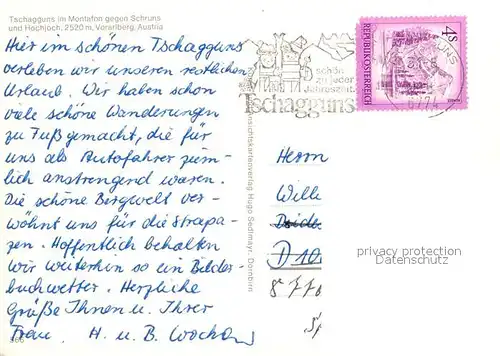 Tschagguns im Montafon gegen Schruns
und Hochjoch, 2520 m, Vorarlberg, Austria
Hier im schönen Tschagguns
verleben wir unseren restlichen
Urlaub. Wir haben schon
viele schöne Wanderungen
zu Fuß gemacht, die für
uns als Autofahrer ziem-
lich anstrengend waren.
Die schöne Bergwelt ver-
wöhnt uns für die Strapa-
zen. Hoffentlich behalten
wir weiterhin so ein Bilder
buchwetter. Herzliche
Grüße Ihnen u. Ihrer
Frau. H. u. B.
Hugo Sedlmayr, Dornbirn
schön
zu jeder
Jahreszeit
Tschagguns
6774
4S
REPUBLIK ÖSTERREICH
Herrn
Wille
D 10
privacy protection
Datenschutz